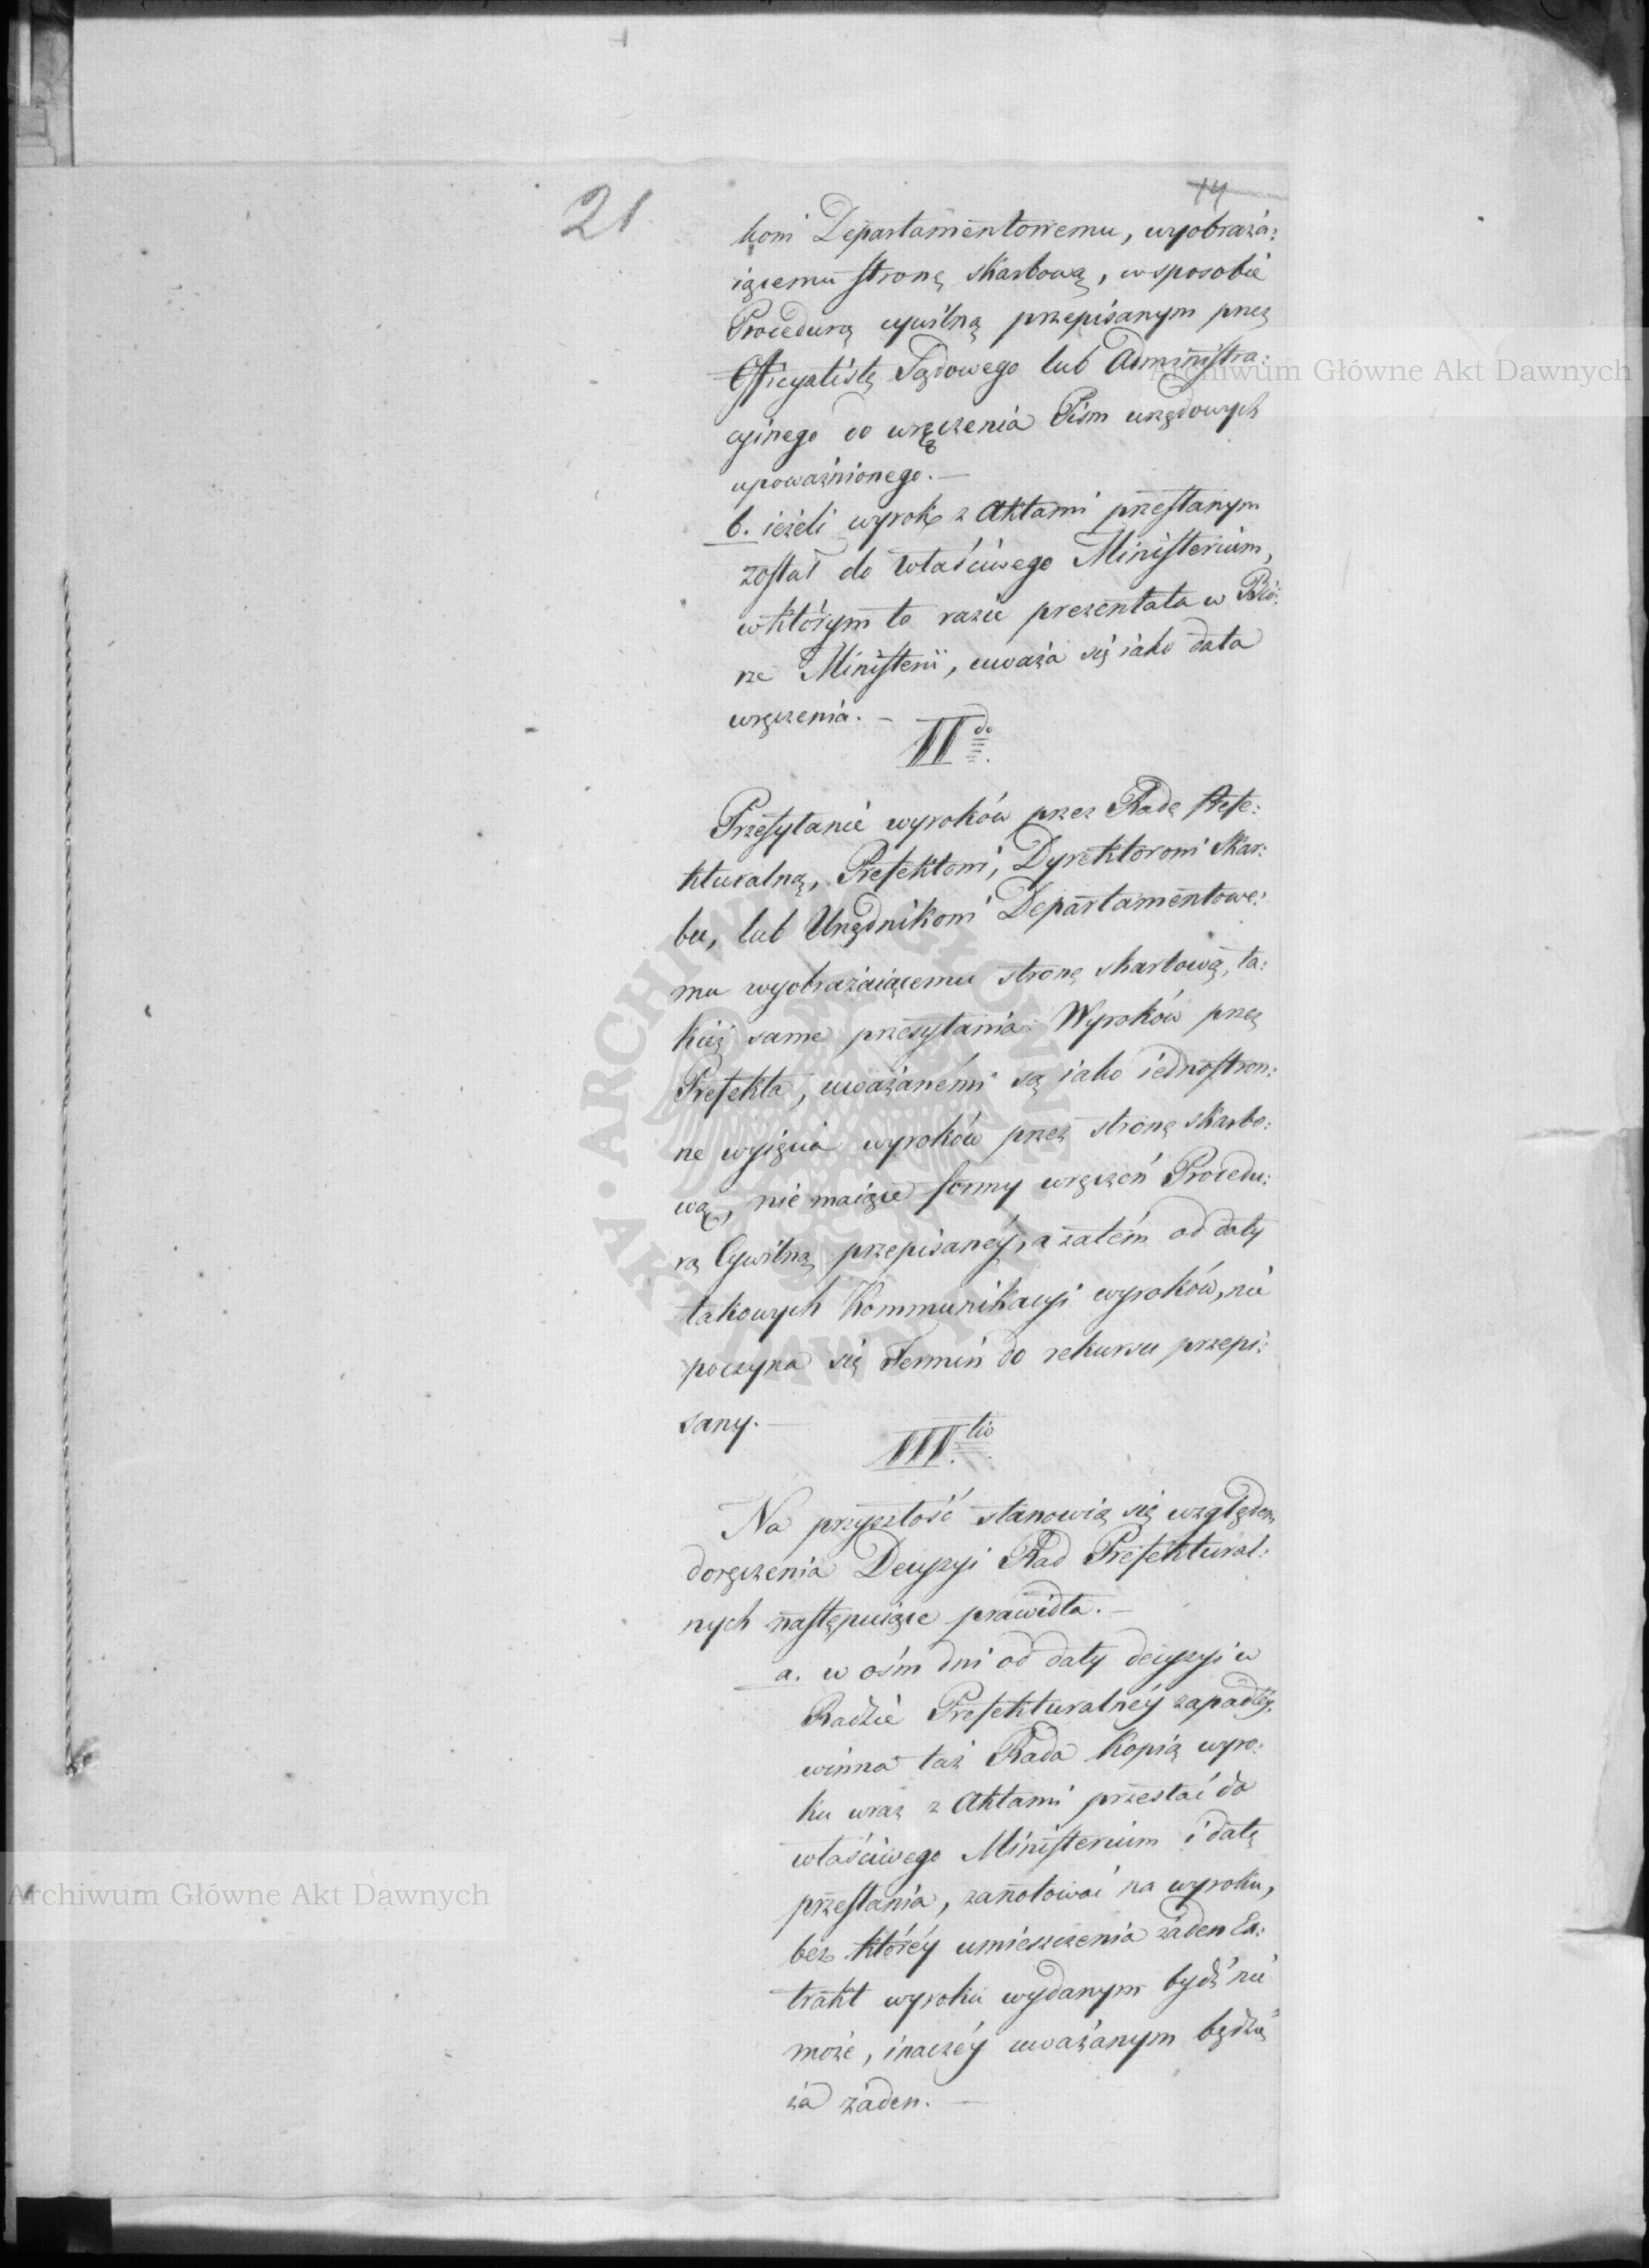 21
14
kowi Departamentowemu, wyobraża:
iącemu stronę skarbową, w sposobie
Procedurą cywilną przepisanym przez
Officyalistę Sądowego lub Administra:
cyinego do wręczenia Pism urzędowych
upoważnionego. —
b. ieżeli wyrok z Aktami przesłanym
został do właściwego Ministerium,
w którym to razie prezentata w Biō:
rze Ministerii, uważa się iako data
wręczenia. —
II do
Przesyłanie wyroków przez Radę Prefe:
kturalną, Prefektowi, Dyrektorowi Skar:
bu, lub Urzędnikowi Departamentowe:
mu wyobrażaiącemu stronę skarbową, ta:
kież same przesyłania Wyroków przez
Prefekta, uważanémi są iako iednostron:
ne wyięcia wyroków przez stronę skarbo:
wą, nie maiące formy wręczeń Procedu:
rą Cywilną przepisanéy, a zatém od daty
takowych Kommunikacyi wyroków, nie
poczyna się Termin do rekursu przepi:
sany. —
III tio
Na przyszłość stanowią się względem
doręczenia Decyzyi Rad Prefektural:
nych następuiące prawidła. —
a. w ośm dni od daty decyzyi w
Radzie Prefekturalnéy zapadłéy,
winna taż Rada Kopią wyro:
ku wraz z Aktami przesłać do
właściwego Ministerium i datę
przesłania, zanotować na wyroku,
bez któréy umieszczenia żaden Ex:
trakt wyroku wydanym bydź nie
może, inaczéy uważanym będzie
za żaden. —
Archiwum Główne Akt Dawnych
Archiwum Główne Akt Dawnych
ARCHIWUM GŁÓWNE AKT DAWNYCH